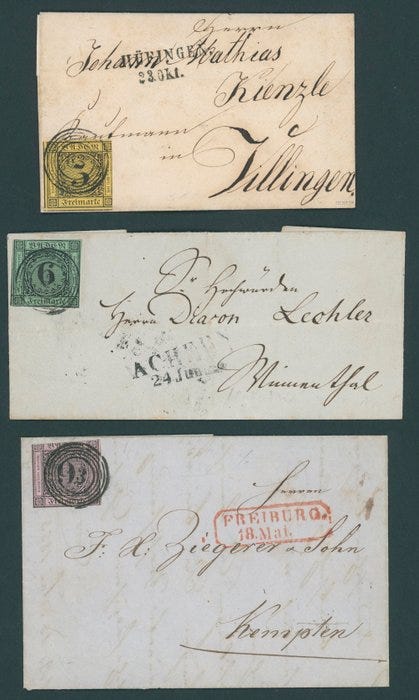 Herrn
Johann Mathias
HÜFINGEN.
23.Okt.
Kienzle
Kaufmann
in
Villingen.
BADEN
Freimarke
Sr Hochwürden
BADEN
6
Freimarke
Herrn Diacon Lechler
ACHERN
24 Jun
Winnenthal
Herrn
FREIBURG.
18.Mai.
F. X. Ziegerer & Sohn
Kempten